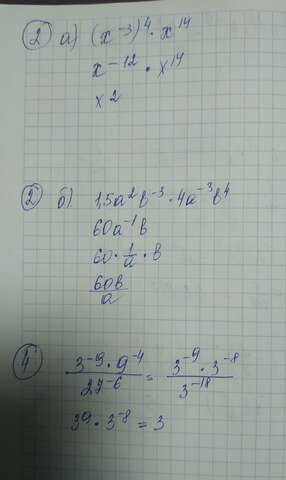 ② а) (x⁻³)⁴ · x¹⁴
x⁻¹² · x¹⁴
x2
② б) 1,5a²b⁻³ · 4a⁻³b⁴
60a⁻¹b
60 · 1/a · b
60b/a
④ 3⁻⁹ · 9⁻⁴ / 27⁻⁶ = 3⁻⁹ · 3⁻⁸ / 3⁻¹⁸
3⁹ · 3⁻⁸ = 3